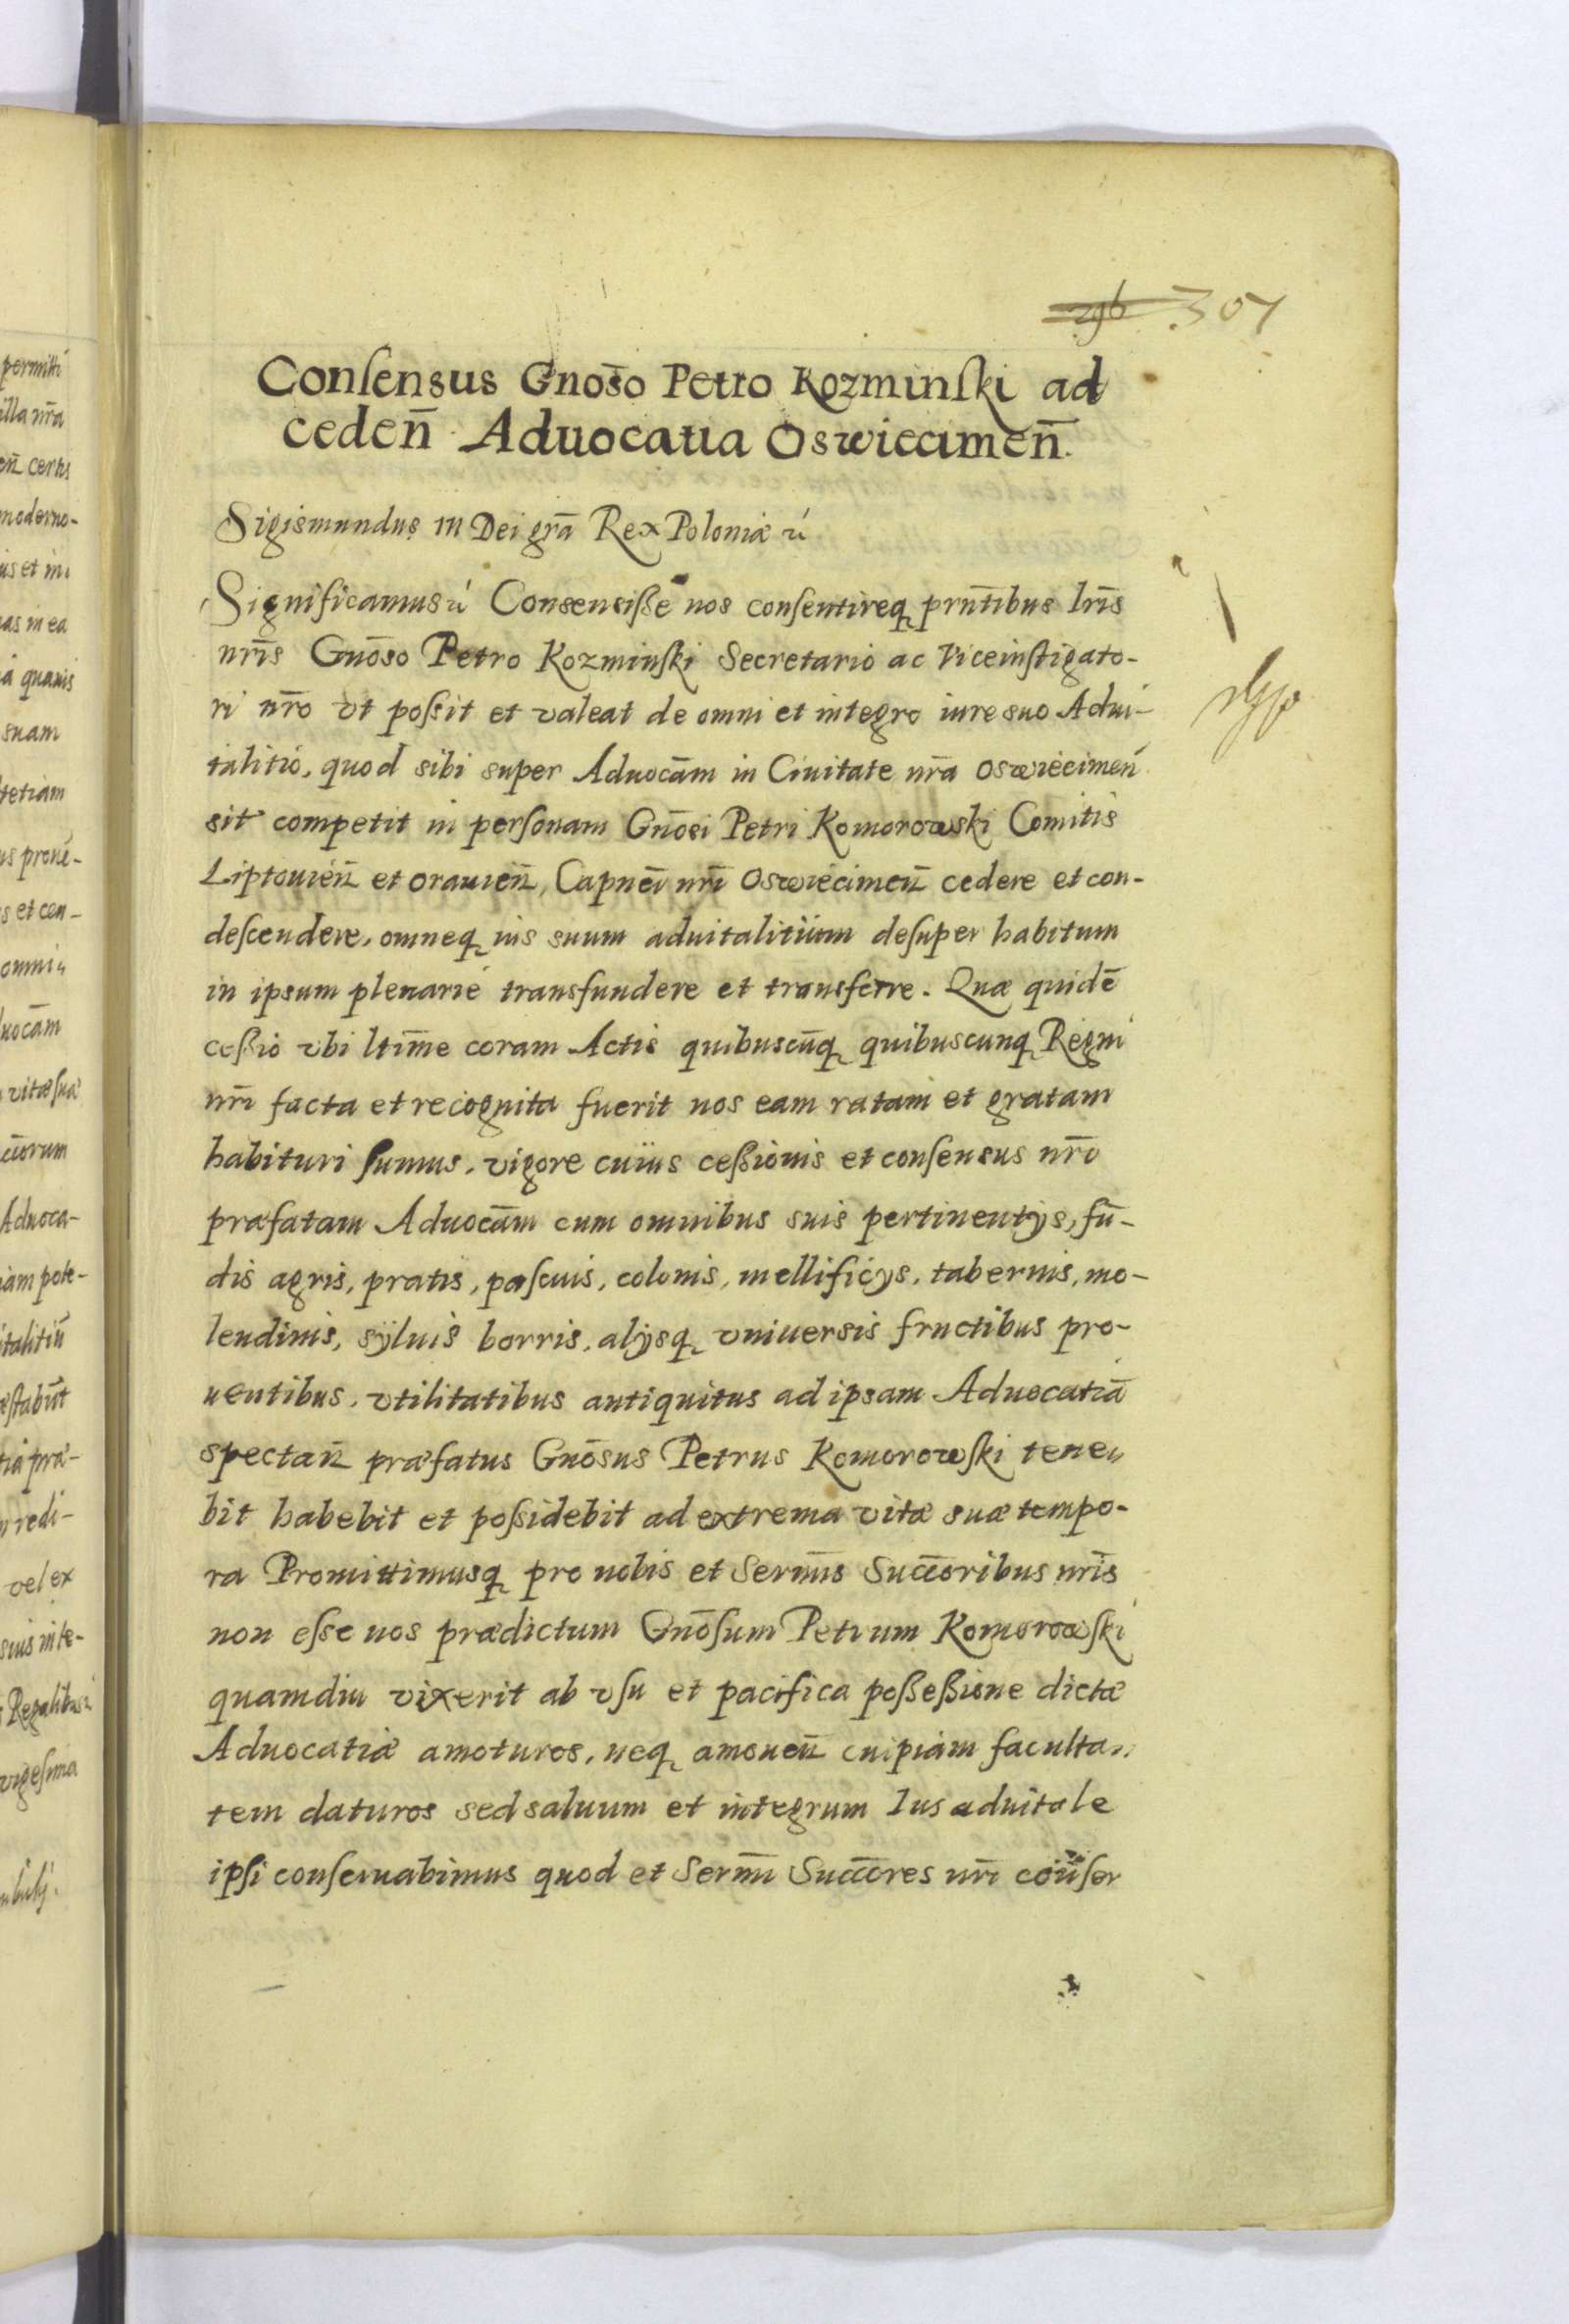 307
Conſensus Gnos̄o Petro Kozminſki ad
cedeñ Aduocatia Oswiecimeñ.
Sigismundus III Dei grā Rex Poloniæ
Significamus Consensiſse nos conſentireq prn̄tibus lrīs
nrīs Gnōso Petro Kozminſki Secretario ac Viceinſtigato-
ri nr̄o vt poſsit et valeat de omni et integro iure suo Adui-
talitio, quod sibi super Aduocām in Ciuitate nrā Oswiecimeń
sit competit in perſonam Gnōsi Petri Komorowski Comitis
Liptouień et Orauień, Capneī nrī Oswiecimeñ cedere et con-
deſcendere, omneq ius suum aduitalitium deſuper habitum
in ipsum plenarie transfundere et transferre. Quæ quidē
ceſsio vbi ltīme coram Actis quibuscūq quibuscunq Regni
nrī facta et recognita fuerit nos eam ratam et gratam
habituri ſumus. vigore cuius ceſsionis et conſensus nr̄o
præfatam Aduocām cum omnibus suis pertinentijs, fū-
dis agris, pratis, paſcuis, colonis, mellificijs, tabernis, mo-
lendinis, syluis borris, alijsq vniuersis fructibus pro-
uentibus, vtilitatibus antiquitus ad ipsam Aduocatiā
spectañ præfatus Gnōsus Petrus Komorowſki tene„
bit habebit et poſsidebit ad extrema vitæ suæ tempo-
ra Promittimusq pro nobis et Serm̄is Succ̄oribus nrīs
non eſse nos prædictum Gnōſum Petrum Komorowſki
quamdiu vixerit ab vſu et pacifica poſseſsione dictæ
Aduocatiæ amoturos, neq amoueñ cuipiam faculta„
tem daturos sed saluum et integrum Ius aduitale
ipſi conſeruabimus quod et Serm̄i Succ̄ores nrī conſer